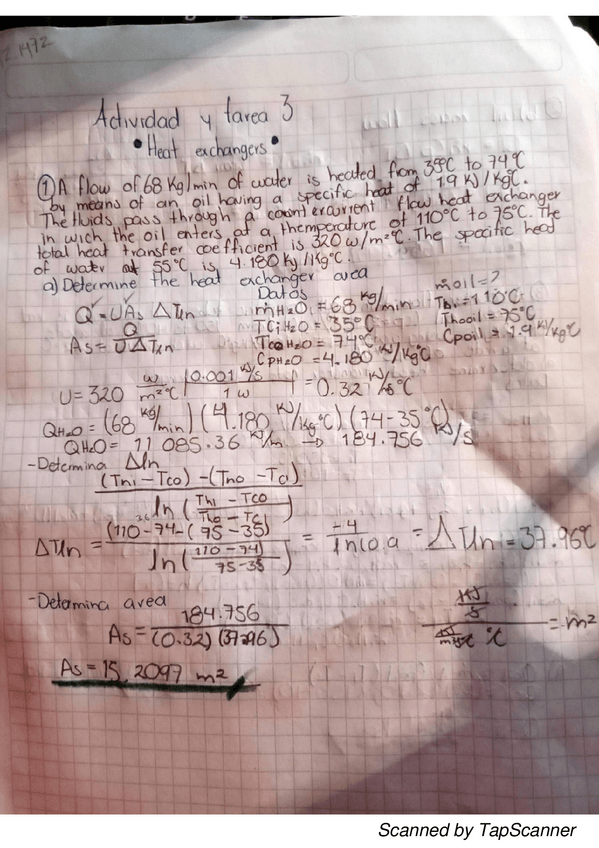 Z 1472
Actividad y tarea 3
• Heat exchangers •
① A flow of 68 Kg/min of water is heated from 35°C to 74°C
by means of an oil having a specific heat of 1.9 KJ/Kg°C.
The fluids pass through a countercurrent flow heat exchanger
in wich the oil enters at a themperature of 110°C to 75°C. The
total heat transfer coefficient is 320 w/m²°C. The spacific head
of water at 55°C is 4.180 Kj/Kg°C.
a) Determine the heat exchanger area
Datos
Q = UAs ΔTLn
As = Q / UΔTLn
ṁH2O = 68 Kg/min
TCiH2O = 35°C
TCoH2O = 74°C
CpH2O = 4.180 KJ/Kg°C
ṁoil = ?
Thi = 110°C
Thooil = 75°C
Cpoil = 1.9 KJ/Kg°C
U = 320 w/m²°C | 0.001 KJ/s / 1 w = 0.32 KJ/s°C
QH2O = (68 Kg/min)(4.180 KJ/Kg°C)(74-35°C)
QH2O = 11 085.36 KJ/m → 184.756 KJ/s
- Determina ΔLn
(Thi - Tco) - (Tho - Tci) / ln (Thi - Tco / Tho - Tci)
ΔTLn = (110-74-(75-35) / ln (110-74 / 75-35) = -4 / ln(0.9 = ΔTLn = 37.96°C
- Determina area
As = 184.756 / (0.32)(37.96)
KJ/s / KJ/m²s°C °C = m²
As = 15.2097 m²
Scanned by TapScanner